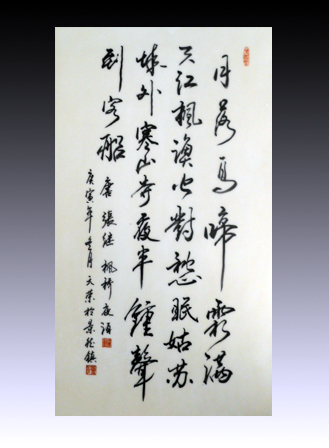 月落烏啼霜滿
天江楓漁火對愁眠姑苏
城外寒山寺夜半鐘聲
到客船
唐張继楓桥夜泊
庚寅年冬月文荣於景德鎮